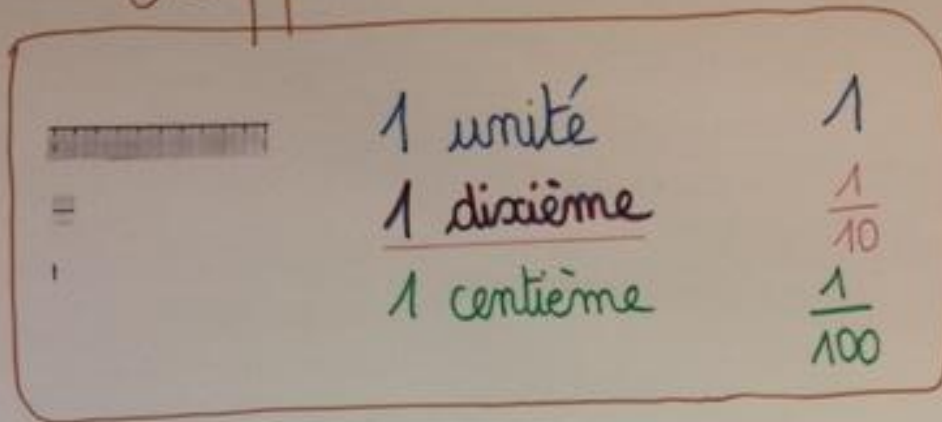 1 unité 1
1 dixième 1/10
1 centième 1/100